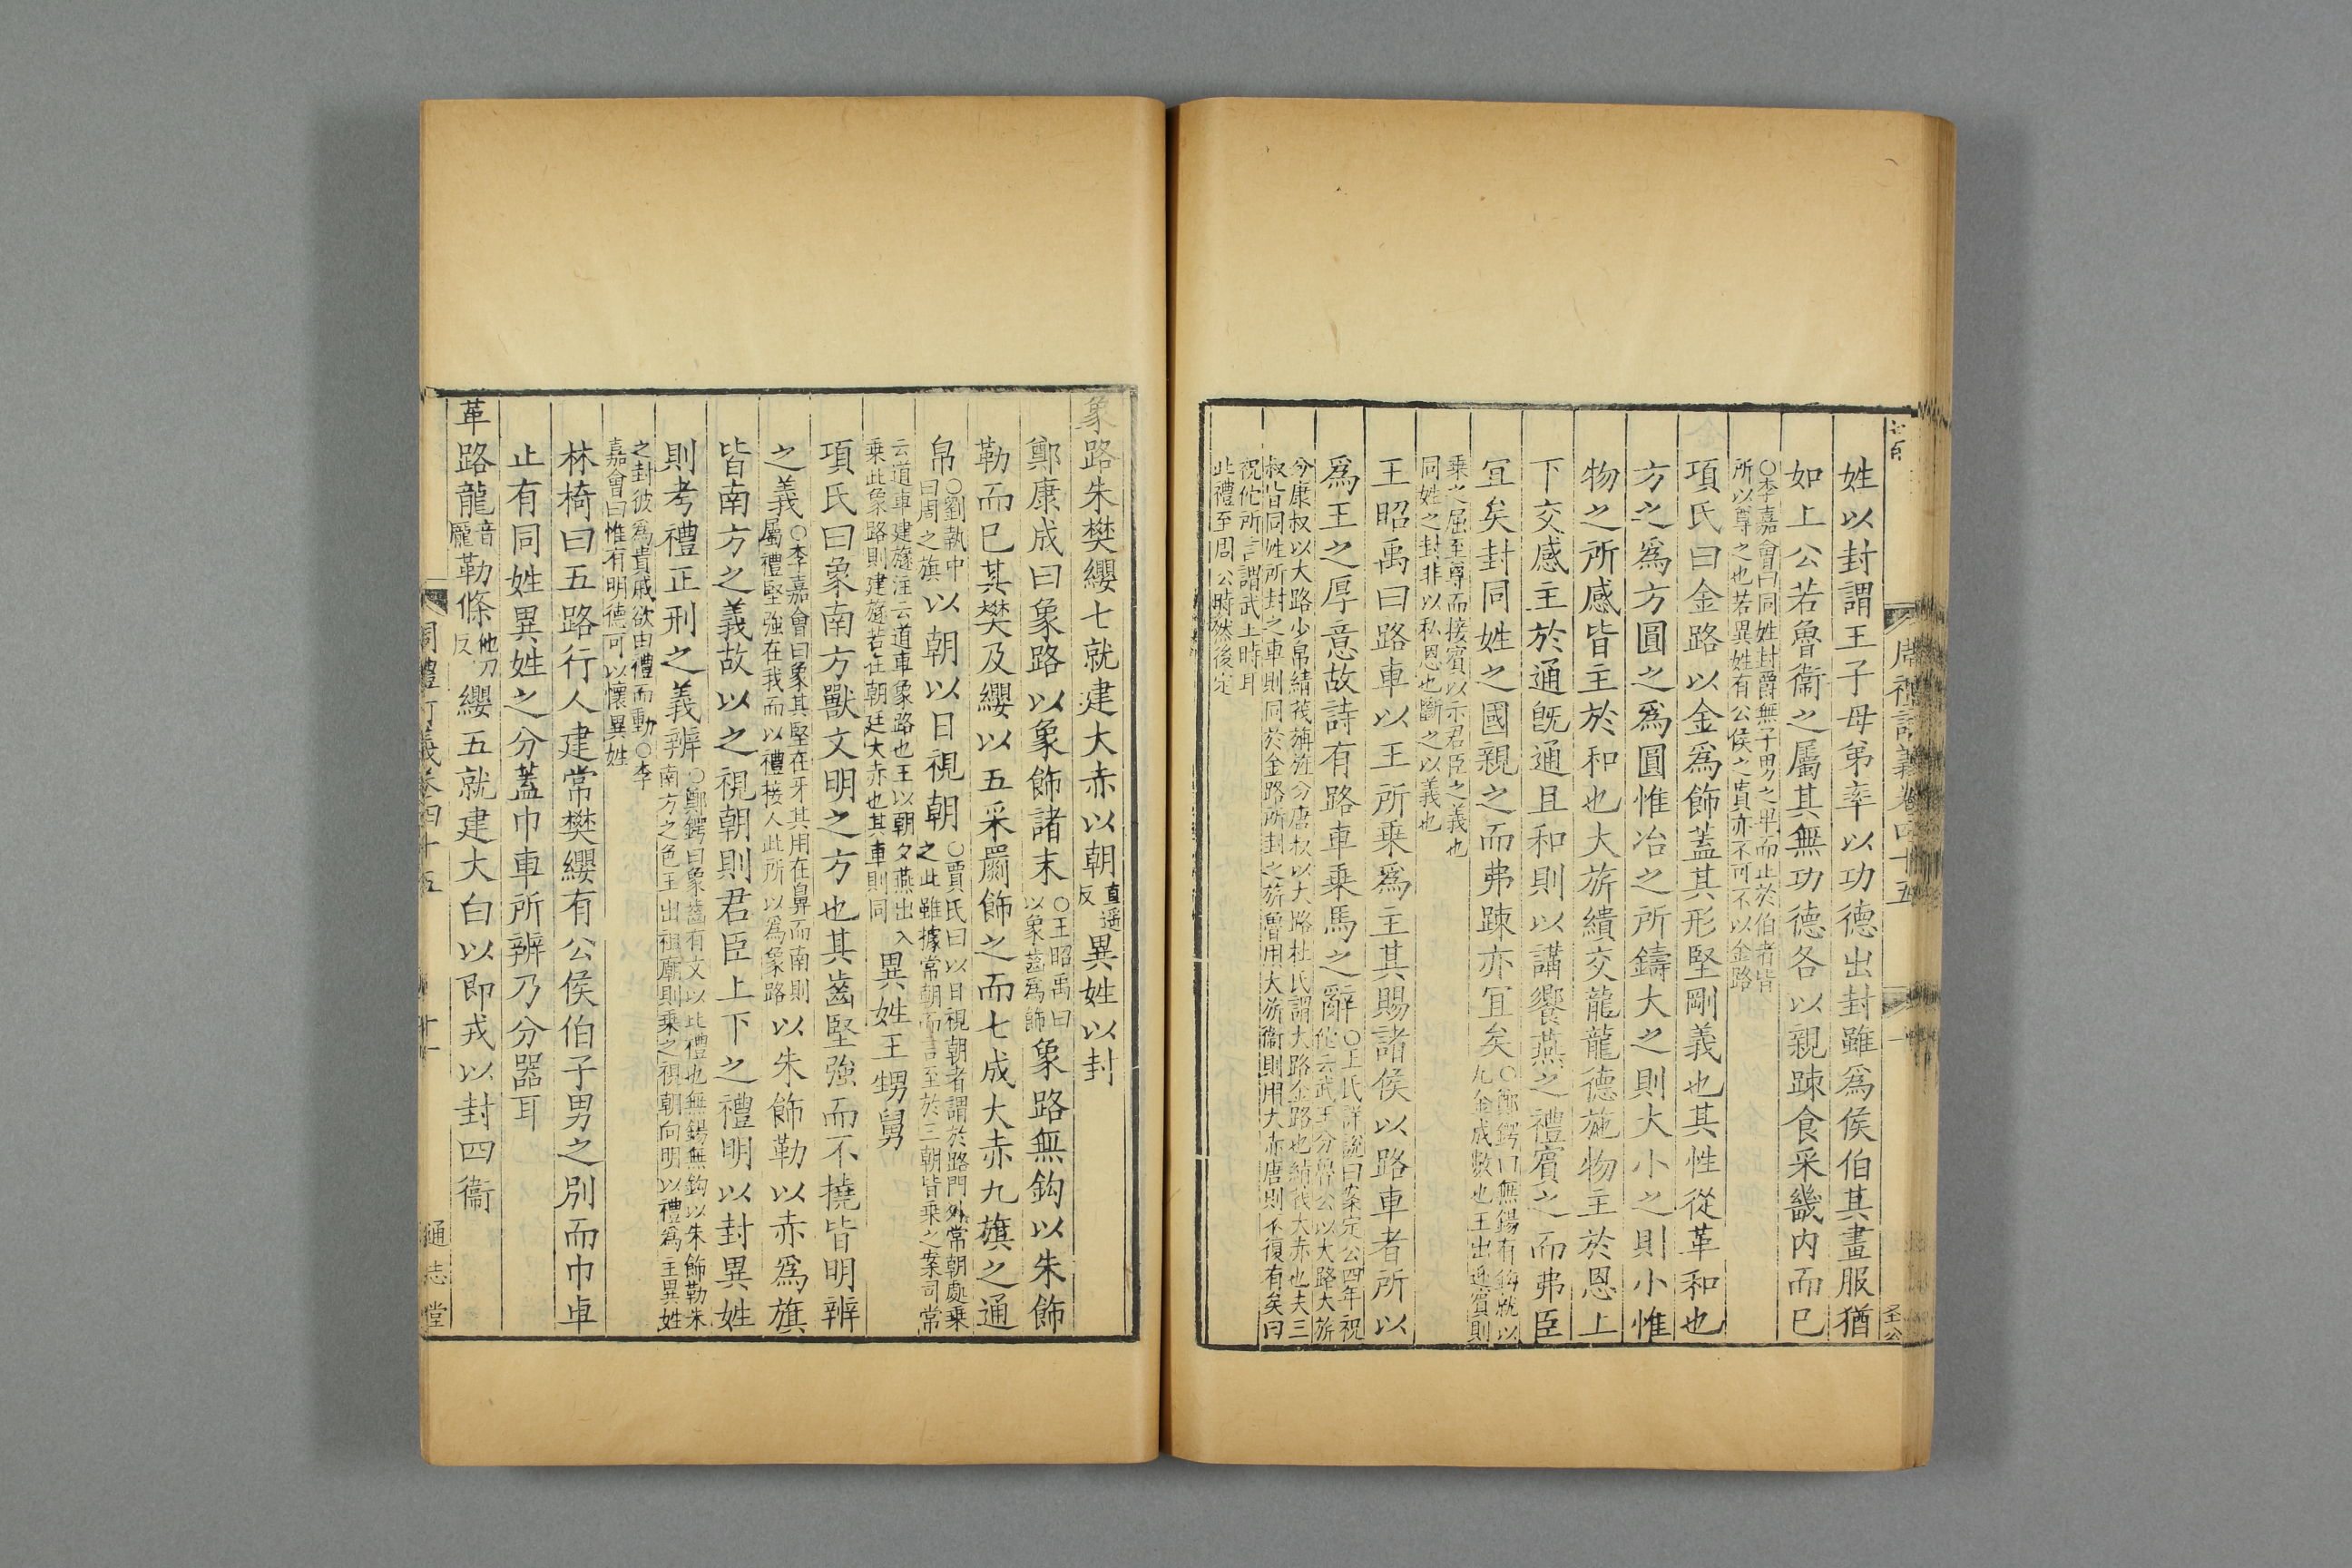 周禮訂義卷四十五
姓以封謂王子母弟率以功德出封雖爲侯伯其畫服猶
如上公若魯衞之屬其無功德各以親踈食采畿内而已
○李嘉會曰同姓封爵無子男之卑而止於伯者皆
所以尊之也若異姓有公侯之貴亦不可不以金路
項氏曰金路以金爲飾蓋其形堅剛義也其性從革和也
方之爲方圓之爲圓惟冶之所鑄大之則大小之則小惟
物之所感皆主於和也大旂繢交龍龍德施物主於恩上
下交感主於通旣通且和則以講饗燕之禮賓之而弗臣
宜矣封同姓之國親之而弗踈亦宜矣
○鄭鍔曰無鍚有鉤就以
九金成數也王出迎賓則
乗之屈至尊而接賓以示君臣之義也
同姓之封非以私恩也斷之以義也
王昭禹曰路車以王所乗爲主其賜諸侯以路車者所以
爲王之厚意故詩有路車乗馬之辭
○王氏詳說曰案定公四年祝
佗云武王分魯公以大路大旂
分康叔以大路少帛綪茷旃旌分唐叔以大路杜氏謂大路金路也綪茷大赤也夫三
叔皆同姓所封之車則同於金路所封之旂魯用大旂衞則用大赤唐則不復有矣曰
祝佗所言謂武王時耳
此禮至周公時然後定
象路朱樊纓七就建大赤以朝直遥反異姓以封
鄭康成曰象路以象飾諸末○王昭禹曰以象齒爲飾象路無鈎以朱飾
勒而已其樊及纓以五采罽飾之而七成大赤九旗之通
帛○劉執中曰周之旗以朝以日視朝
○賈氏曰以日視朝者謂於路門外常朝處乗
之此雖據常朝而言至於三朝皆乗之案司常
云道車建旞注云道車象路也王以朝夕燕出入
乗此象路則建旞若在朝廷大赤也其車則同
異姓王甥舅
項氏曰象南方獸文明之方也其齒堅強而不撓皆明辨
之義○李嘉會曰象其堅在牙其用在鼻而南則
屬禮堅強在我而以禮接人此所以爲象路
以朱飾勒以赤爲旗
皆南方之義故以之視朝則君臣上下之禮明以封異姓
則考禮正刑之義辨
○鄭鍔曰象齒有文以此禮也無鍚無鈎以朱飾勒朱
南方之色王出祖廟則乗之視朝向明以禮爲主異姓
之封彼爲貴戚欲由禮而動○李
嘉會曰惟有明德可以懷異姓
林椅曰五路行人建常樊纓有公侯伯子男之別而巾車
止有同姓異姓之分蓋巾車所辨乃分器耳
革路龍音龎勒條他刀反纓五就建大白以即戎以封四衞
周禮訂義卷四十五
十一
通志堂